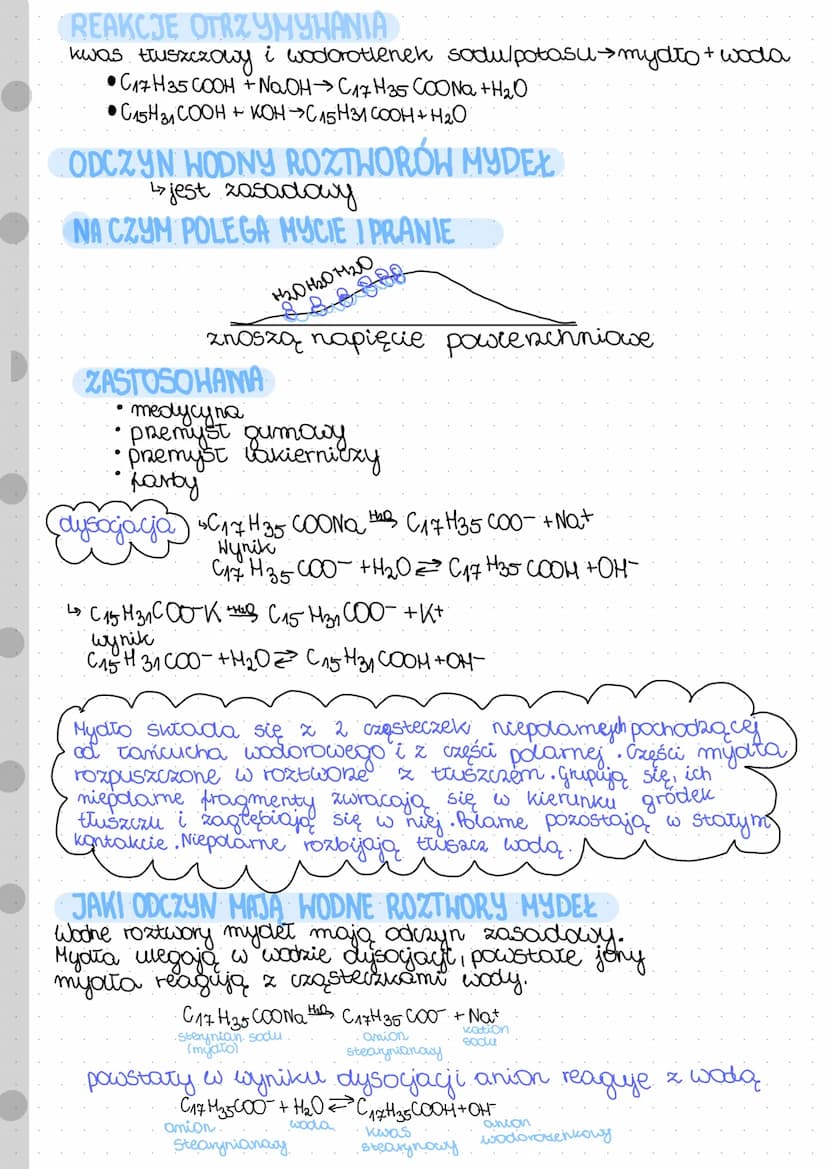 REAKCJE OTRZYMYWANIA
kwas tłuszczowy i wodorotlenek sodu/potasu→mydło + woda
• C17H35COOH + NaOH → C17H35COONa + H2O
• C15H31COOH + KOH → C15H31COOH + H2O
ODCZYN WODNY ROZTWORÓW MYDEŁ
↳ jest zasadowy
NA CZYM POLEGA MYCIE I PRANIE
H2O H2O H2O
znoszą napięcie powierzchniowe
ZASTOSOWANIA
• medycyna
• przemysł gumowy
• przemysł lakierniczy
• farby
dysocjacja ↳ C17H35COONa H2O→ C17H35COO- + Na+
Wynik
C17H35COO- + H2O ⇄ C17H35COOH + OH-
↳ C15H31COO-K +H2O→ C15H31COO- + K+
wynik
C15H31COO- + H2O ⇄ C15H31COOH + OH-
Mydło składa się z 2 cząsteczek niepolarnych pochodzącej
od łańcucha wodorowego i z części polarnej. Części mydła
rozpuszczone w roztworze z tłuszczem. Grupują się, ich
niepolarne fragmenty zwracają się w kierunku gródek
tłuszczu i zagłębiają się w niej. Polarne pozostają w stałym
kontakcie. Niepolarne rozbijają tłuszcz wodą.
JAKI ODCZYN MAJĄ WODNE ROZTWORY MYDEŁ
Wodne roztwory mydeł mają odczyn zasadowy.
Mydła ulegają w wodzie dysocjacji, powstałe jony
mydła reagują z cząsteczkami wody.
C17H35COONa H2O→ C17H35COO- + Na+
sterynian sodu anion kation
(mydło) stearynianowy sodu
powstały w wyniku dysocjacji anion reaguje z wodą
C17H35COO- + H2O ⇄ C17H35COOH + OH-
anion woda kwas anion
stearynianowy stearynowy wodorotlenkowy